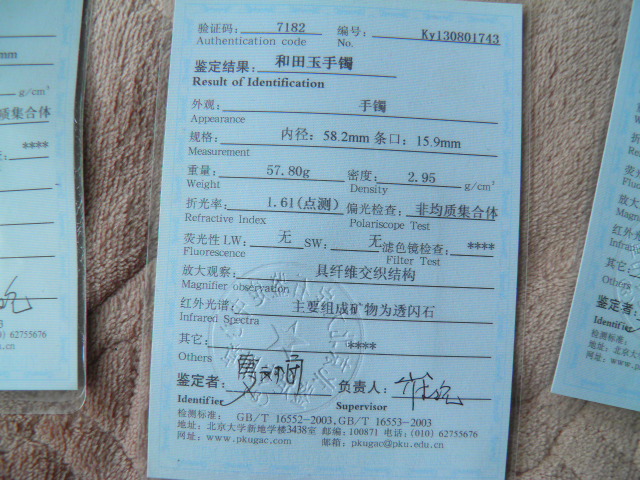 验证码: 7182 编号: Ky130801743
Authentication code No.
鉴定结果: 和田玉手镯
Result of Identification
外观: 手镯
Appearance
规格: 内径: 58.2mm 条口: 15.9mm
Measurement
重量: 57.80g 密度: 2.95 g/cm³
Weight Density
折光率: 1.61(点测) 偏光检查: 非均质集合体
Refractive Index Polariscope Test
荧光性 LW: 无 SW: 无 滤色镜检查: ****
Fluorescence Filter Test
放大观察: 具纤维交织结构
Magnifier observation
红外光谱: 主要组成矿物为透闪石
Infrared Spectra
其它: ****
Others
鉴定者: 负责人:
Identifier Supervisor
检测标准: GB/T 16552-2003、GB/T 16553-2003
地址: 北京大学新地学楼3438室 邮编: 100871 电话: (010) 62755676
网址: www.pkugac.com 邮箱: pkugac@pku.edu.cn
mm
g/cm³
质集合体
****
2003
) 62755676
u.edu.cn
外观
Appea
规格
Meas
重量
Weig
折光
Refra
荧光
Fluo
放大
Magn
红外
Infra
其它
Othe
鉴定者
Identifier
检测标准:
地址: 北京大
网址: www